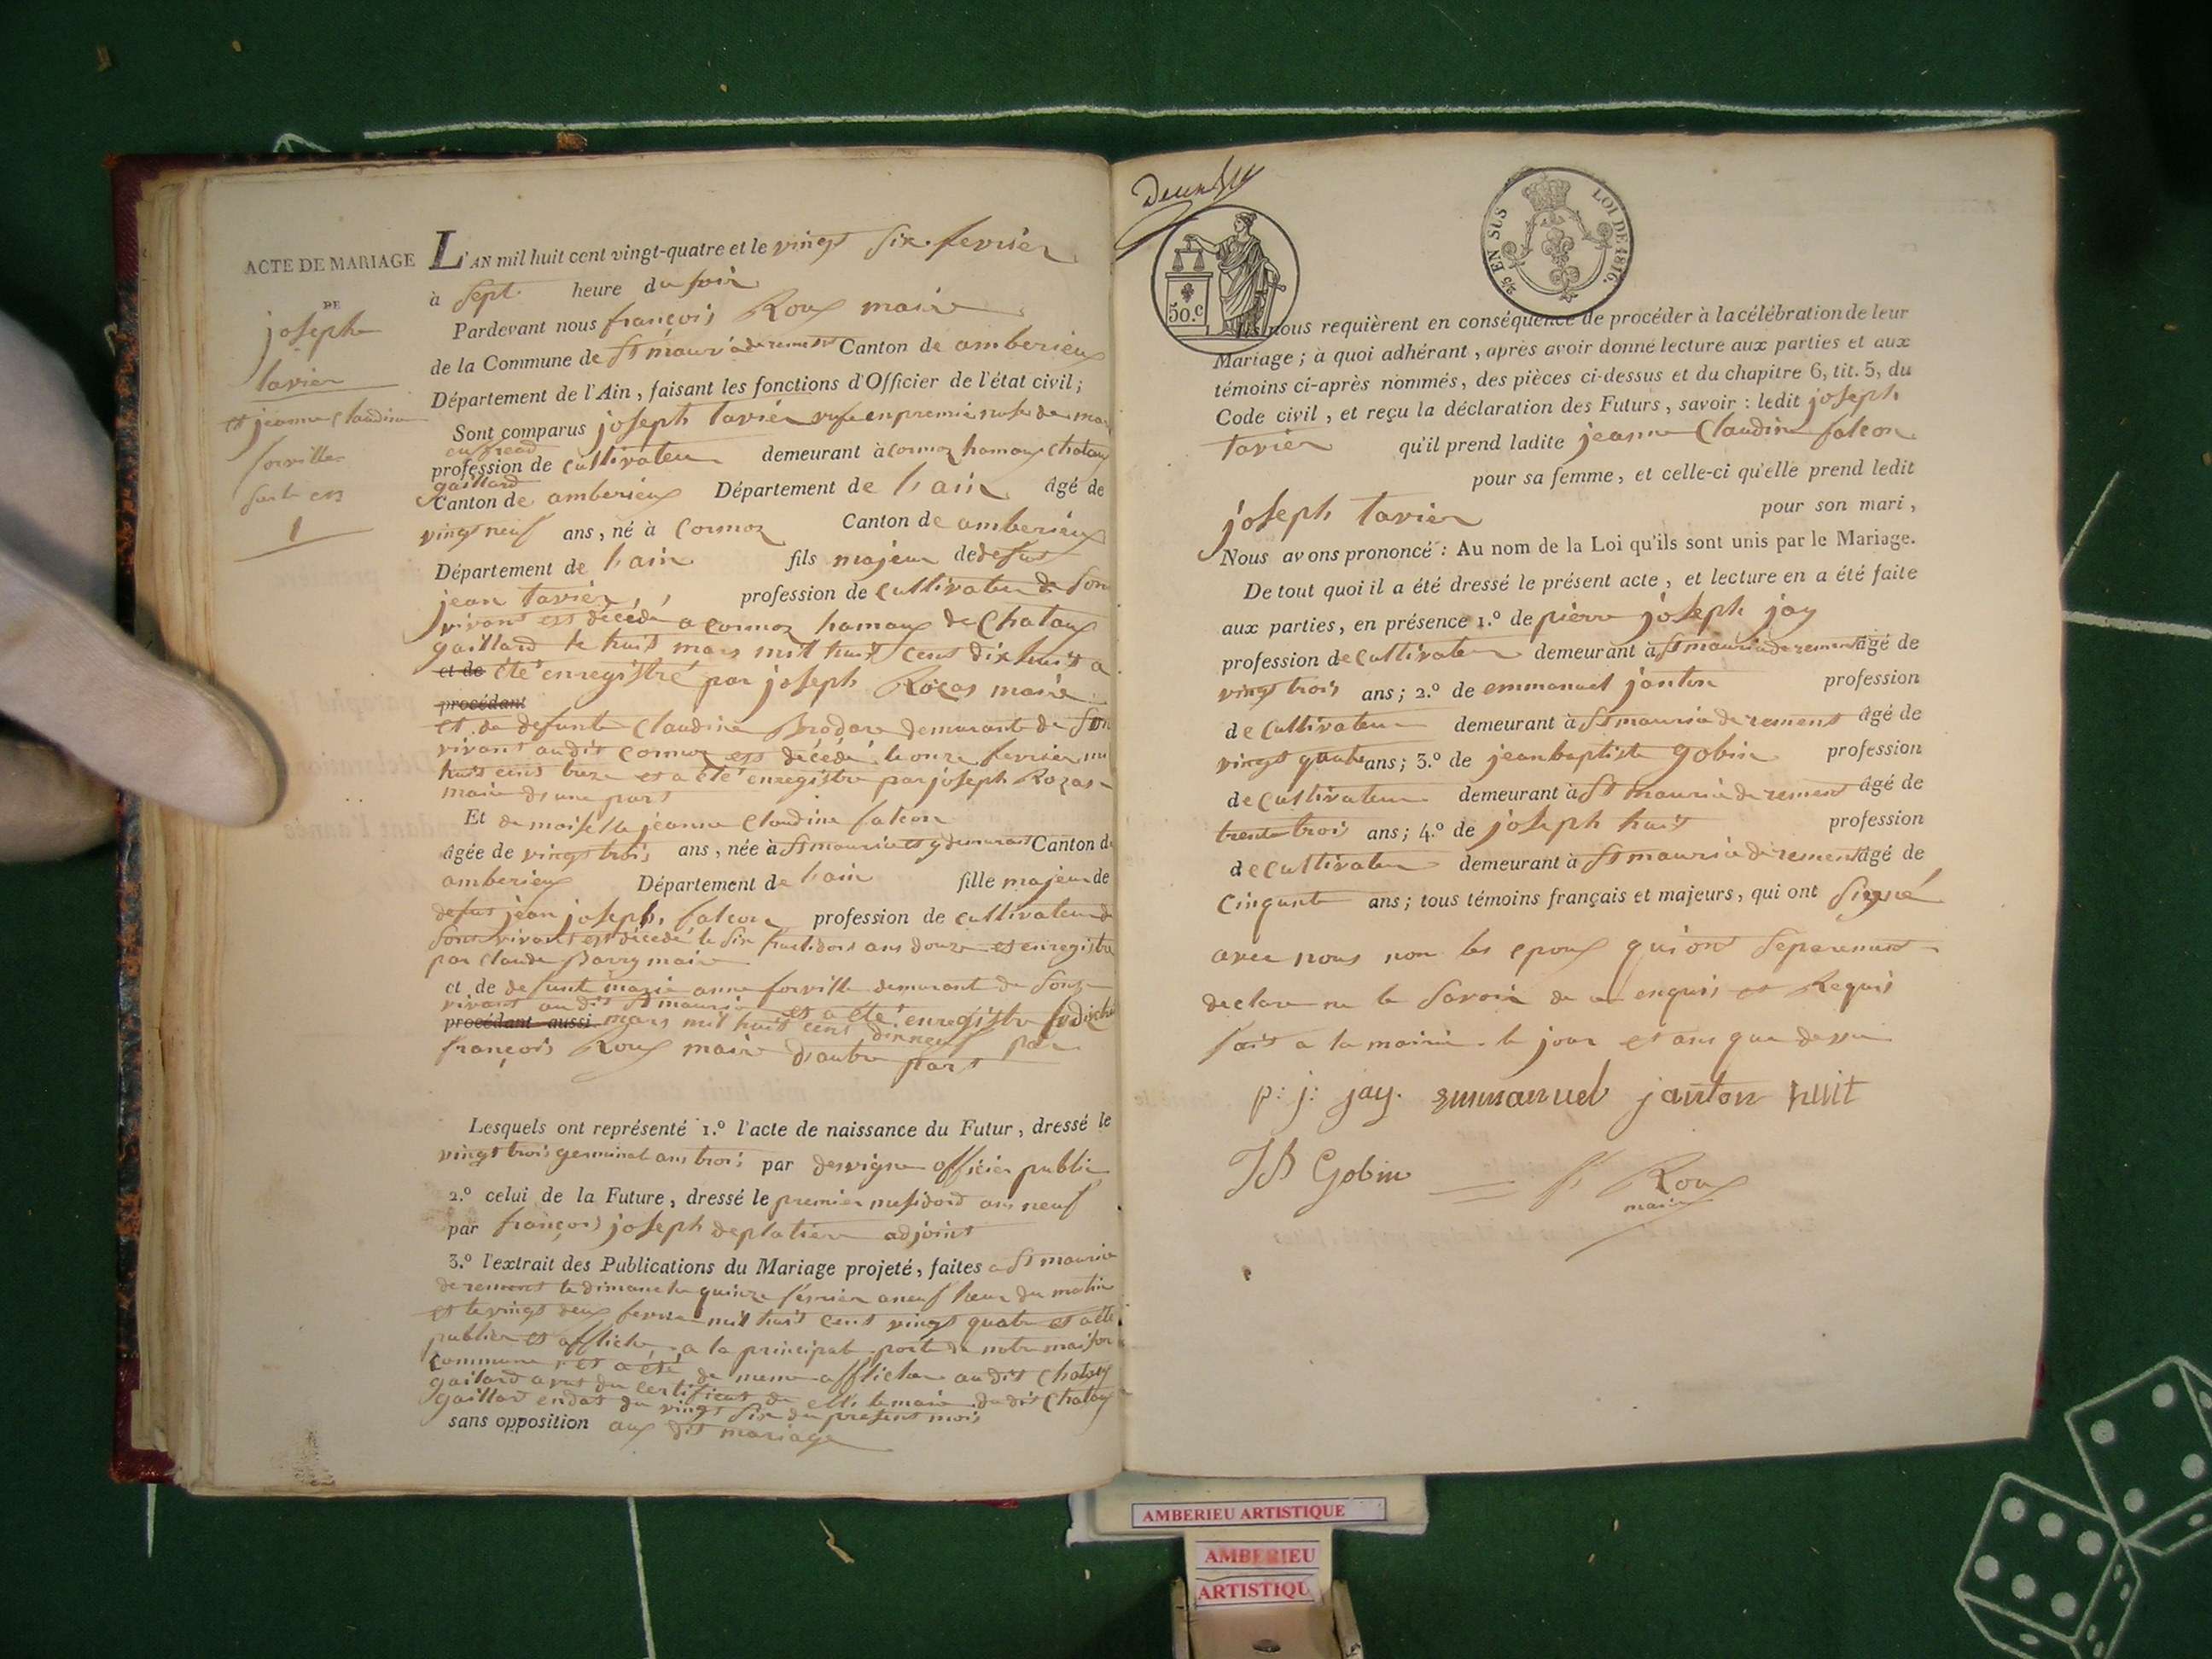 ACTE DE MARIAGE
DE
joseph
tavier
et jeanne Claudine
L'AN mil huit cent vingt-quatre et le vingt six fevrier
à sept heure du soir
Pardevant nous françois Roux maire
de la Commune de St mauri de remens Canton de amberieux
Département de l'Ain, faisant les fonctions d'Officier de l'état civil;
Sont comparus joseph tavier
profession de cultivateur demeurant à cormoz hamaux Chatau
gaillard
Canton de amberieux Département de l'ain âgé de
vingt neuf ans, né à Cormoz Canton de amberieux
Département de l'ain fils majeur de defunt
jean tavier, profession de cultivateur de son
vivant est décédé a cormoz hamaux de Chataux
gaillard le huit mars mil huit cent dix huit a
et de été enregistré par joseph Rozas maire
procédant
et de defunte Claudine Brodare demurant de son
vivant audit cormoz est décédé le onze fevrier mil
huit cent treze et a été enregistre par joseph Rozas
maire d'une part
Et demoiselle jeanne Claudine falcon
âgée de vingt trois ans, née à St mauri et y demurant Canton de
amberieux Département de l'ain fille majeur de
defunt jean joseph falcon profession de cultivateur de
son vivant est décédé le six fructidors ans douze et enregistre
par Claude Barry maire
et de defunte marie anne forville demurant de son
vivant au dit St mauri et a été enregistre
procédant aussi mars mil huit cent dix neuf par
françois Roux maire d'autre part
Lesquels ont représenté 1.º l'acte de naissance du Futur, dressé le
vingt trois germinal ans trois par desvigne officier public
2.º celui de la Future, dressé le premier mesidord ans neuf
par françois joseph deplatier adjoint
3.º l'extrait des Publications du Mariage projeté, faites a St mauri
de remens le dimanche quinze fevrier a neuf heur du matin
et le vingt deux fevrier mil huit cent vingt quatre et a été
publier et afficher a la principal porte de notre maison
commune et a été de meme afficher au dit Chataux
gailard certificat de le maire du dit Chataux
gaillard en dat du vingt six du present mois
sans opposition aux dit mariage
50.c
25 EN SUS LOI DE 1816.
Ils nous requièrent en conséquence de procéder à la célébration de leur
Mariage; à quoi adhérant, après avoir donné lecture aux parties et aux
témoins ci-après nommés, des pièces ci-dessus et du chapitre 6, tit. 5, du
Code civil, et reçu la déclaration des Futurs, savoir: ledit joseph
tavier qu'il prend ladite jeanne Claudine falcon
pour sa femme, et celle-ci qu'elle prend ledit
joseph tavier pour son mari,
Nous avons prononcé: Au nom de la Loi qu'ils sont unis par le Mariage.
De tout quoi il a été dressé le présent acte, et lecture en a été faite
aux parties, en présence 1.º de pierre joseph jay
profession de cultivateur demeurant à St mauri de remens âgé de
vingt trois ans; 2.º de emmanuel janton profession
de cultivateur demeurant à St mauri de remens âgé de
vingt quatre ans; 3.º de jean baptiste gobin profession
de cultivateur demeurant à St mauri de remens âgé de
trente trois ans; 4.º de joseph huit profession
de cultivateur demeurant à St mauri de remens âgé de
cinquante ans; tous témoins français et majeurs, qui ont signé
avec nous non les epoux qui ont separemant
declare ne le savoir de ce enquis et Requis
fait a la mairie le jour et ans que dessu
p: j: jay. emmanuel janton huit
JB Gobin Roux
maire
AMBERIEU ARTISTIQUE
AMBERIEU
ARTISTIQU